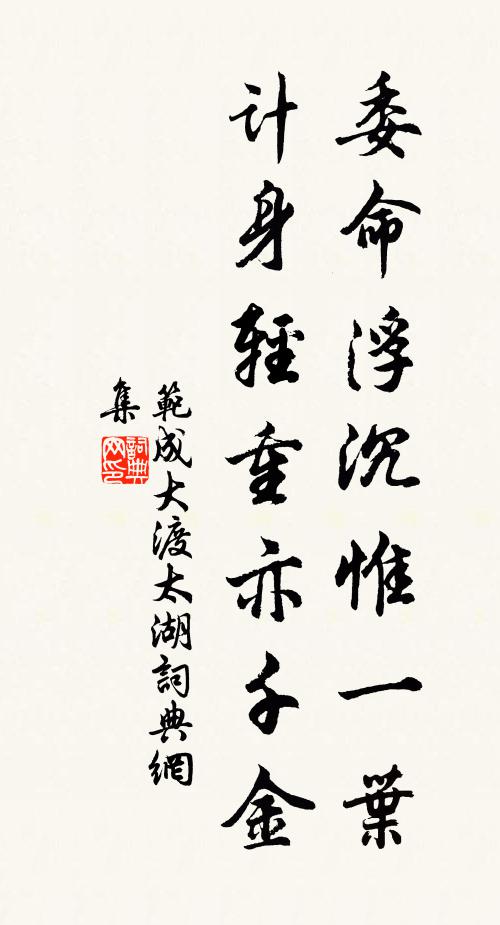 委命浮沉惟一葉
计身輕重亦千金
範成大渡太湖詞典網
集
詞典
网印